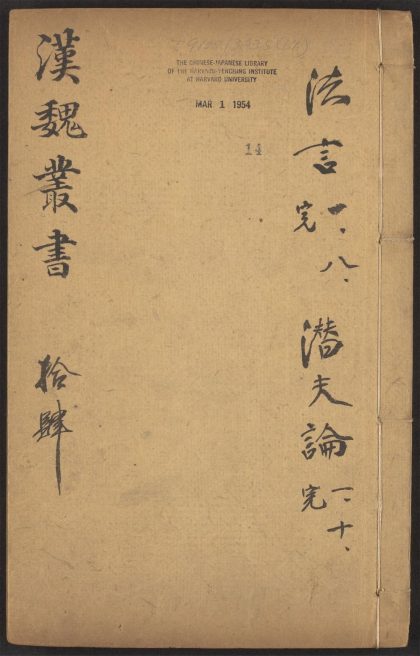 漢魏叢書 拾肆
THE CHINESE-JAPANESE LIBRARY
OF THE HARVARD-YENCHING INSTITUTE
AT HARVARD UNIVERSITY
MAR 1 1954
14
法言 一、八、完
潜夫論 一、十、完